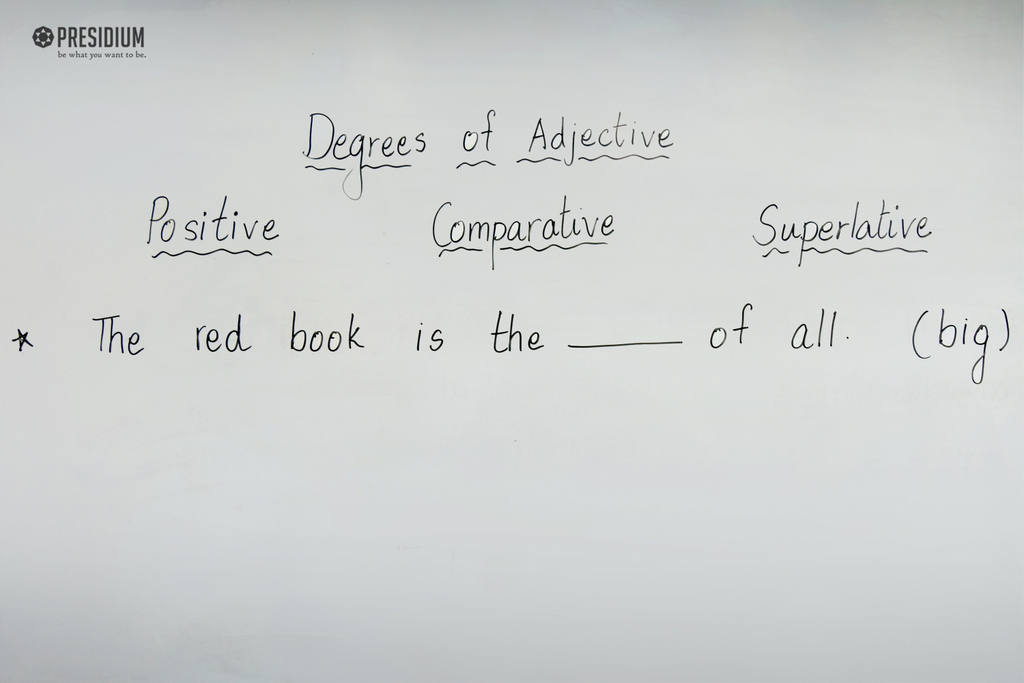 PRESIDIUM
be what you want to be.
Degrees of Adjective
Positive Comparative Superlative
* The red book is the ______ of all. (big)